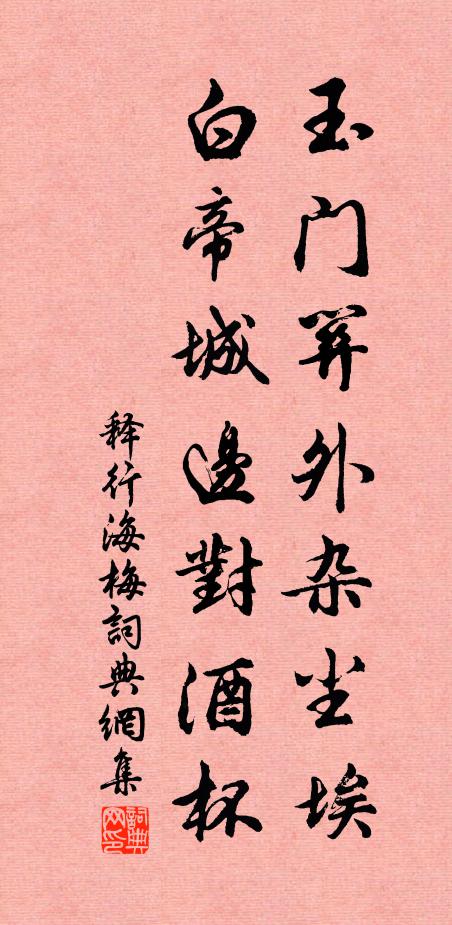 玉门关外杂尘埃
白帝城邊對酒杯
释行海梅詞典網集
詞典网印